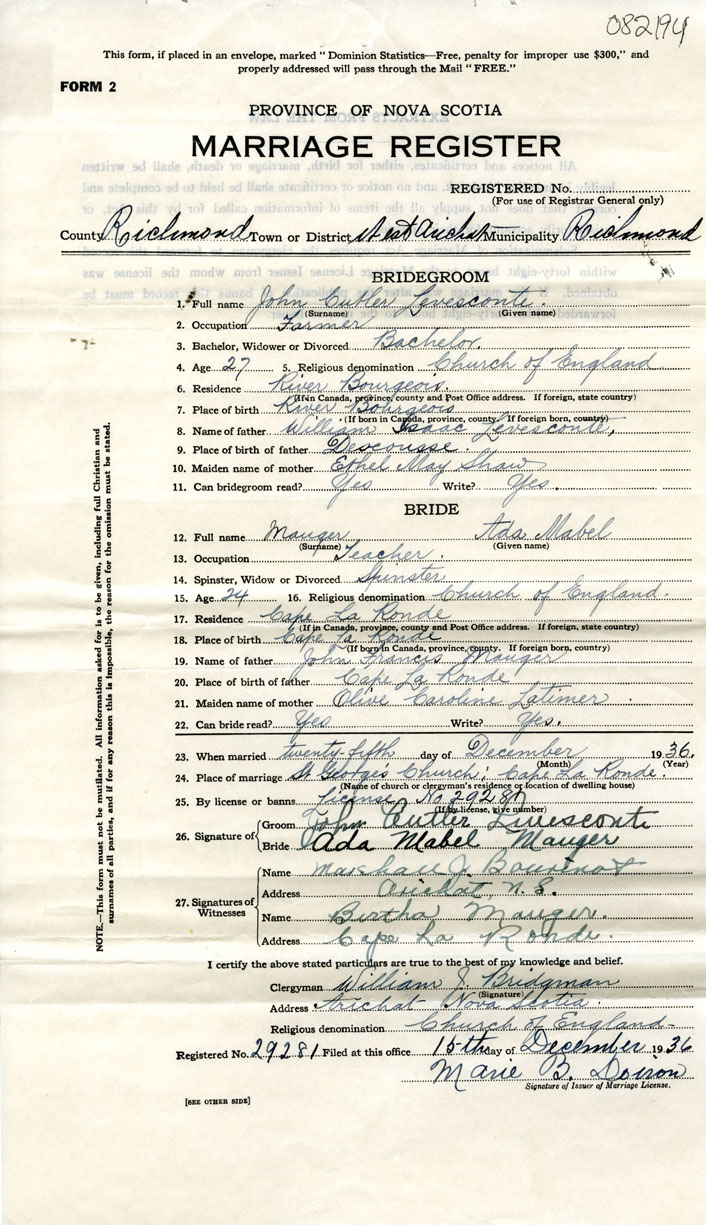 082194
This form, if placed in an envelope, marked "Dominion Statistics—Free, penalty for improper use $300," and
properly addressed will pass through the Mail "FREE."
FORM 2
PROVINCE OF NOVA SCOTIA
MARRIAGE REGISTER
REGISTERED No.
(For use of Registrar General only)
County Richmond Town or District West Arichat Municipality Richmond
BRIDEGROOM
1. Full name John Cutler Levesconte.
(Surname) (Given name)
2. Occupation Farmer
3. Bachelor, Widower or Divorced Bachelor.
4. Age 27 5. Religious denomination Church of England
6. Residence River Bourgeois.
(If in Canada, province, county and Post Office address. If foreign, state country)
7. Place of birth River Bourgeois
(If born in Canada, province, county. If foreign born, country)
8. Name of father William Isaac Levesconte,
9. Place of birth of father Descousse.
10. Maiden name of mother Ethel May Shaw
11. Can bridegroom read? Yes Write? Yes.
BRIDE
12. Full name Mauger Ada Mabel
(Surname) (Given name)
13. Occupation Teacher.
14. Spinster, Widow or Divorced Spinster
15. Age 24 16. Religious denomination Church of England.
17. Residence Cape La Ronde
(If in Canada, province, county and Post Office address. If foreign, state country)
18. Place of birth Cape La Ronde
(If born in Canada, province, county. If foreign born, country)
19. Name of father John Francis Mauger
20. Place of birth of father Cape La Ronde
21. Maiden name of mother Olive Caroline Latimer
22. Can bride read? Yes Write? Yes.
23. When married twenty-fifth day of December 1936.
(Month) (Year)
24. Place of marriage St George's Church, Cape La Ronde.
(Name of church or clergyman's residence or location of dwelling house)
25. By license or banns License No 29281
(If by license, give number)
26. Signature of Groom John Cutler Levesconte
Bride Ada Mabel Mauger
27. Signatures of Witnesses
Name Marshall J. Bourinot
Address Arichat N.S.
Name Bertha Mauger.
Address Cape La Ronde.
I certify the above stated particulars are true to the best of my knowledge and belief.
Clergyman William J. Bridgman
(Signature)
Address Arichat Nova Scotia.
Religious denomination Church of England
Registered No. 29281 Filed at this office 15th day of December 1936
Marie B. Doiron
Signature of Issuer of Marriage License.
[SEE OTHER SIDE]
NOTE.—This form must not be mutilated. All information asked for is to be given, including full Christian and
surnames of all parties, and if for any reason this is impossible, the reason for the omission must be stated.